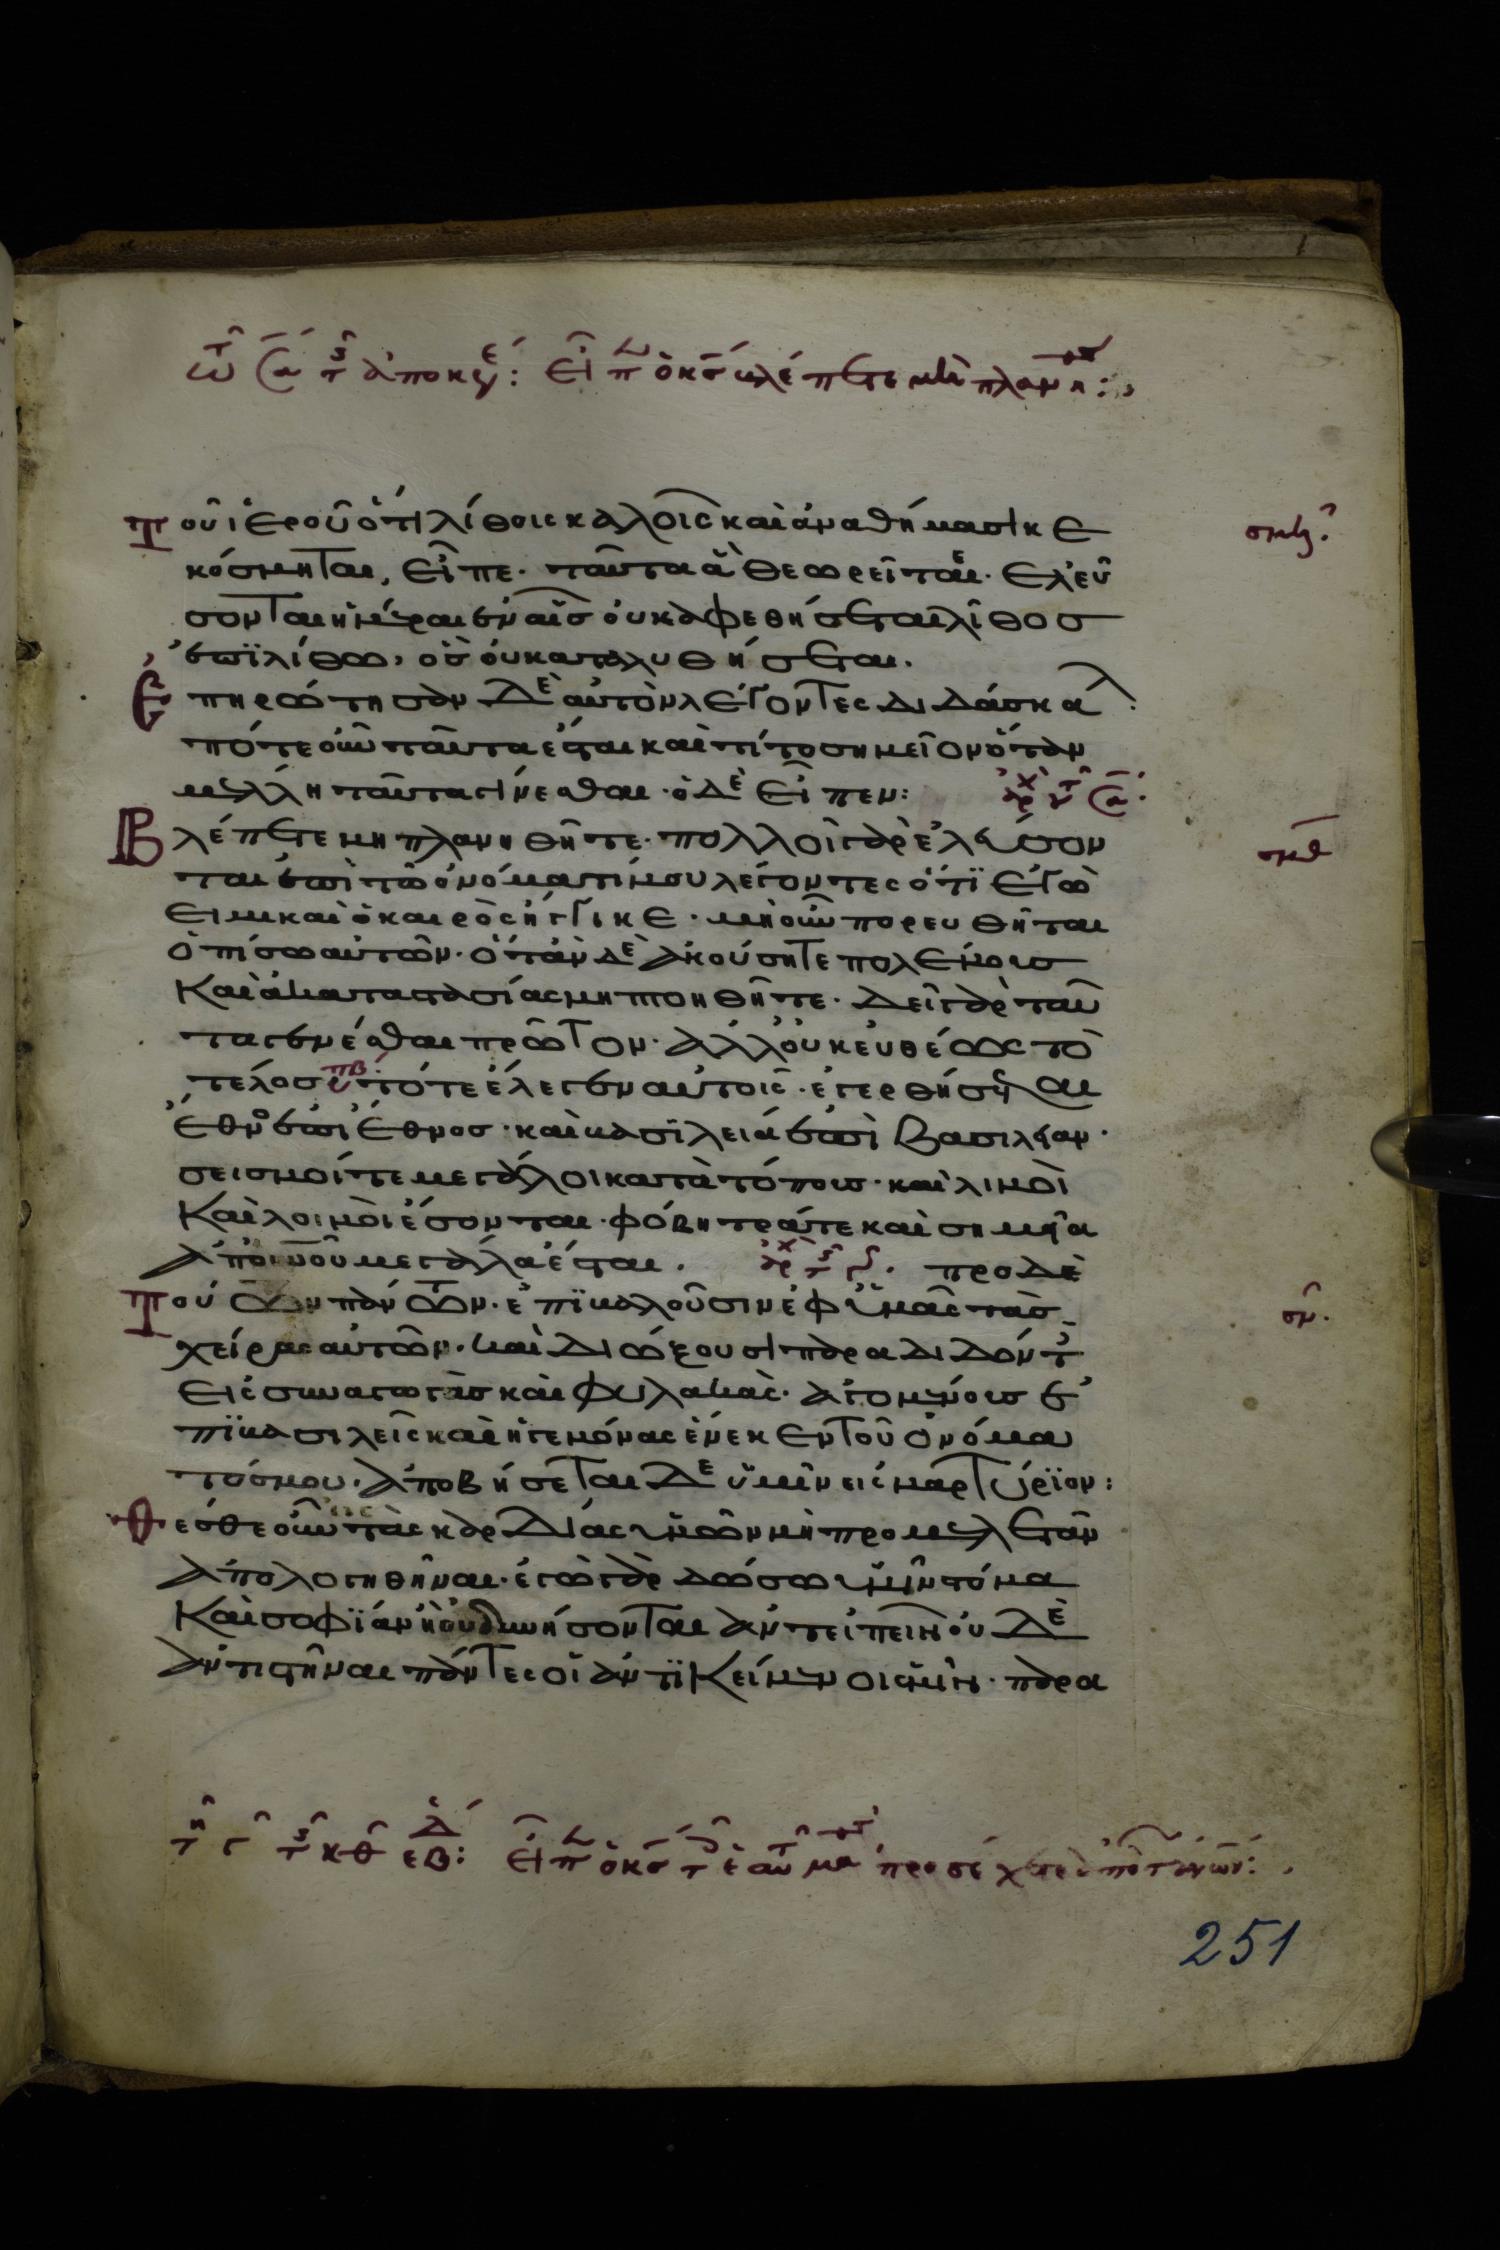 τοῦ ἱεροῦ ὅτι λίθοις καλοῖς καὶ ἀναθήμασι κε
κόσμηται, εἶπε· ταῦτα ἃ θεωρεῖται· ἐλεύ
σονται ἡμέραι ἐν αἷς οὐκ ἀφεθήσεται λίθος
ἐπὶ λίθω, ὃς οὐ καταλυθήσεται.
Ἐπηρώτησαν δὲ αὐτὸν λέγοντες διδάσκαλ
πότε οὖν ταῦτα ἔσται καὶ τί τὸ σημεῖον ὅταν
μέλλη ταῦτα γίνεσθαι· ὁ δὲ εἶπεν:
Βλέπετε μὴ πλανηθῆτε· πολλοὶ γὰρ ἐλεύσον
ται ἐπὶ τῶ ὀνόματί μου λέγοντες ὅτι ἐγώ
εἰμι καὶ ὁ καιρὸς ἤγγικε· μὴ οὖν πορευθῆται
ὀπίσω αὐτῶν· ὅταν δὲ ἀκούσητε πολέμους
καὶ ἀκαταστασίας μὴ πτοηθῆτε· δεῖ γὰρ ταῦ
τα γενέσθαι πρῶτον· ἀλλ' οὐκ εὐθέως τὸ
τέλος τότε ἔλεγεν αὐτοῖς· ἐγερθήσεται
ἔθνος ἐπὶ ἔθνος· καὶ βασιλεία ἐπὶ βασιλείαν·
σεισμοί τε μεγάλοι κατὰ τόπους· καὶ λιμοὶ
καὶ λοιμοὶ ἔσονται· φόβητρά τε καὶ σημεῖα
ἀπ' οὐνοῦ μεγάλα ἔσται. πρὸ δὲ
τούτων πάντων· ἐπιβαλοῦσιν ἐφ' ὑμᾶς τὰς
χεῖρας αὐτῶν· καὶ διώξουσι παραδιδόντ
εἰς συναγωγὰς καὶ φυλακάς· ἀγομένους ἐ
πὶ βασιλεῖς καὶ ἡγεμόνας ἕνεκεν τοῦ ὀνόμα
τός μου· ἀποβήσεται δὲ ὑμῖν εἰς μαρτύριον:
θέσθε οὖν τὰς καρδίας ὑμῶν μὴ προμελετᾶν
ἀπολογηθῆναι· ἐγὼ γὰρ δώσω ὑμῖν στόμα
καὶ σοφίαν ἧ οὐ δυνήσονται ἀντειπεῖν οὐδὲ
ἀντιστῆναι πάντες οἱ ἀντικείμενοι ὑμῖν· παρα
251